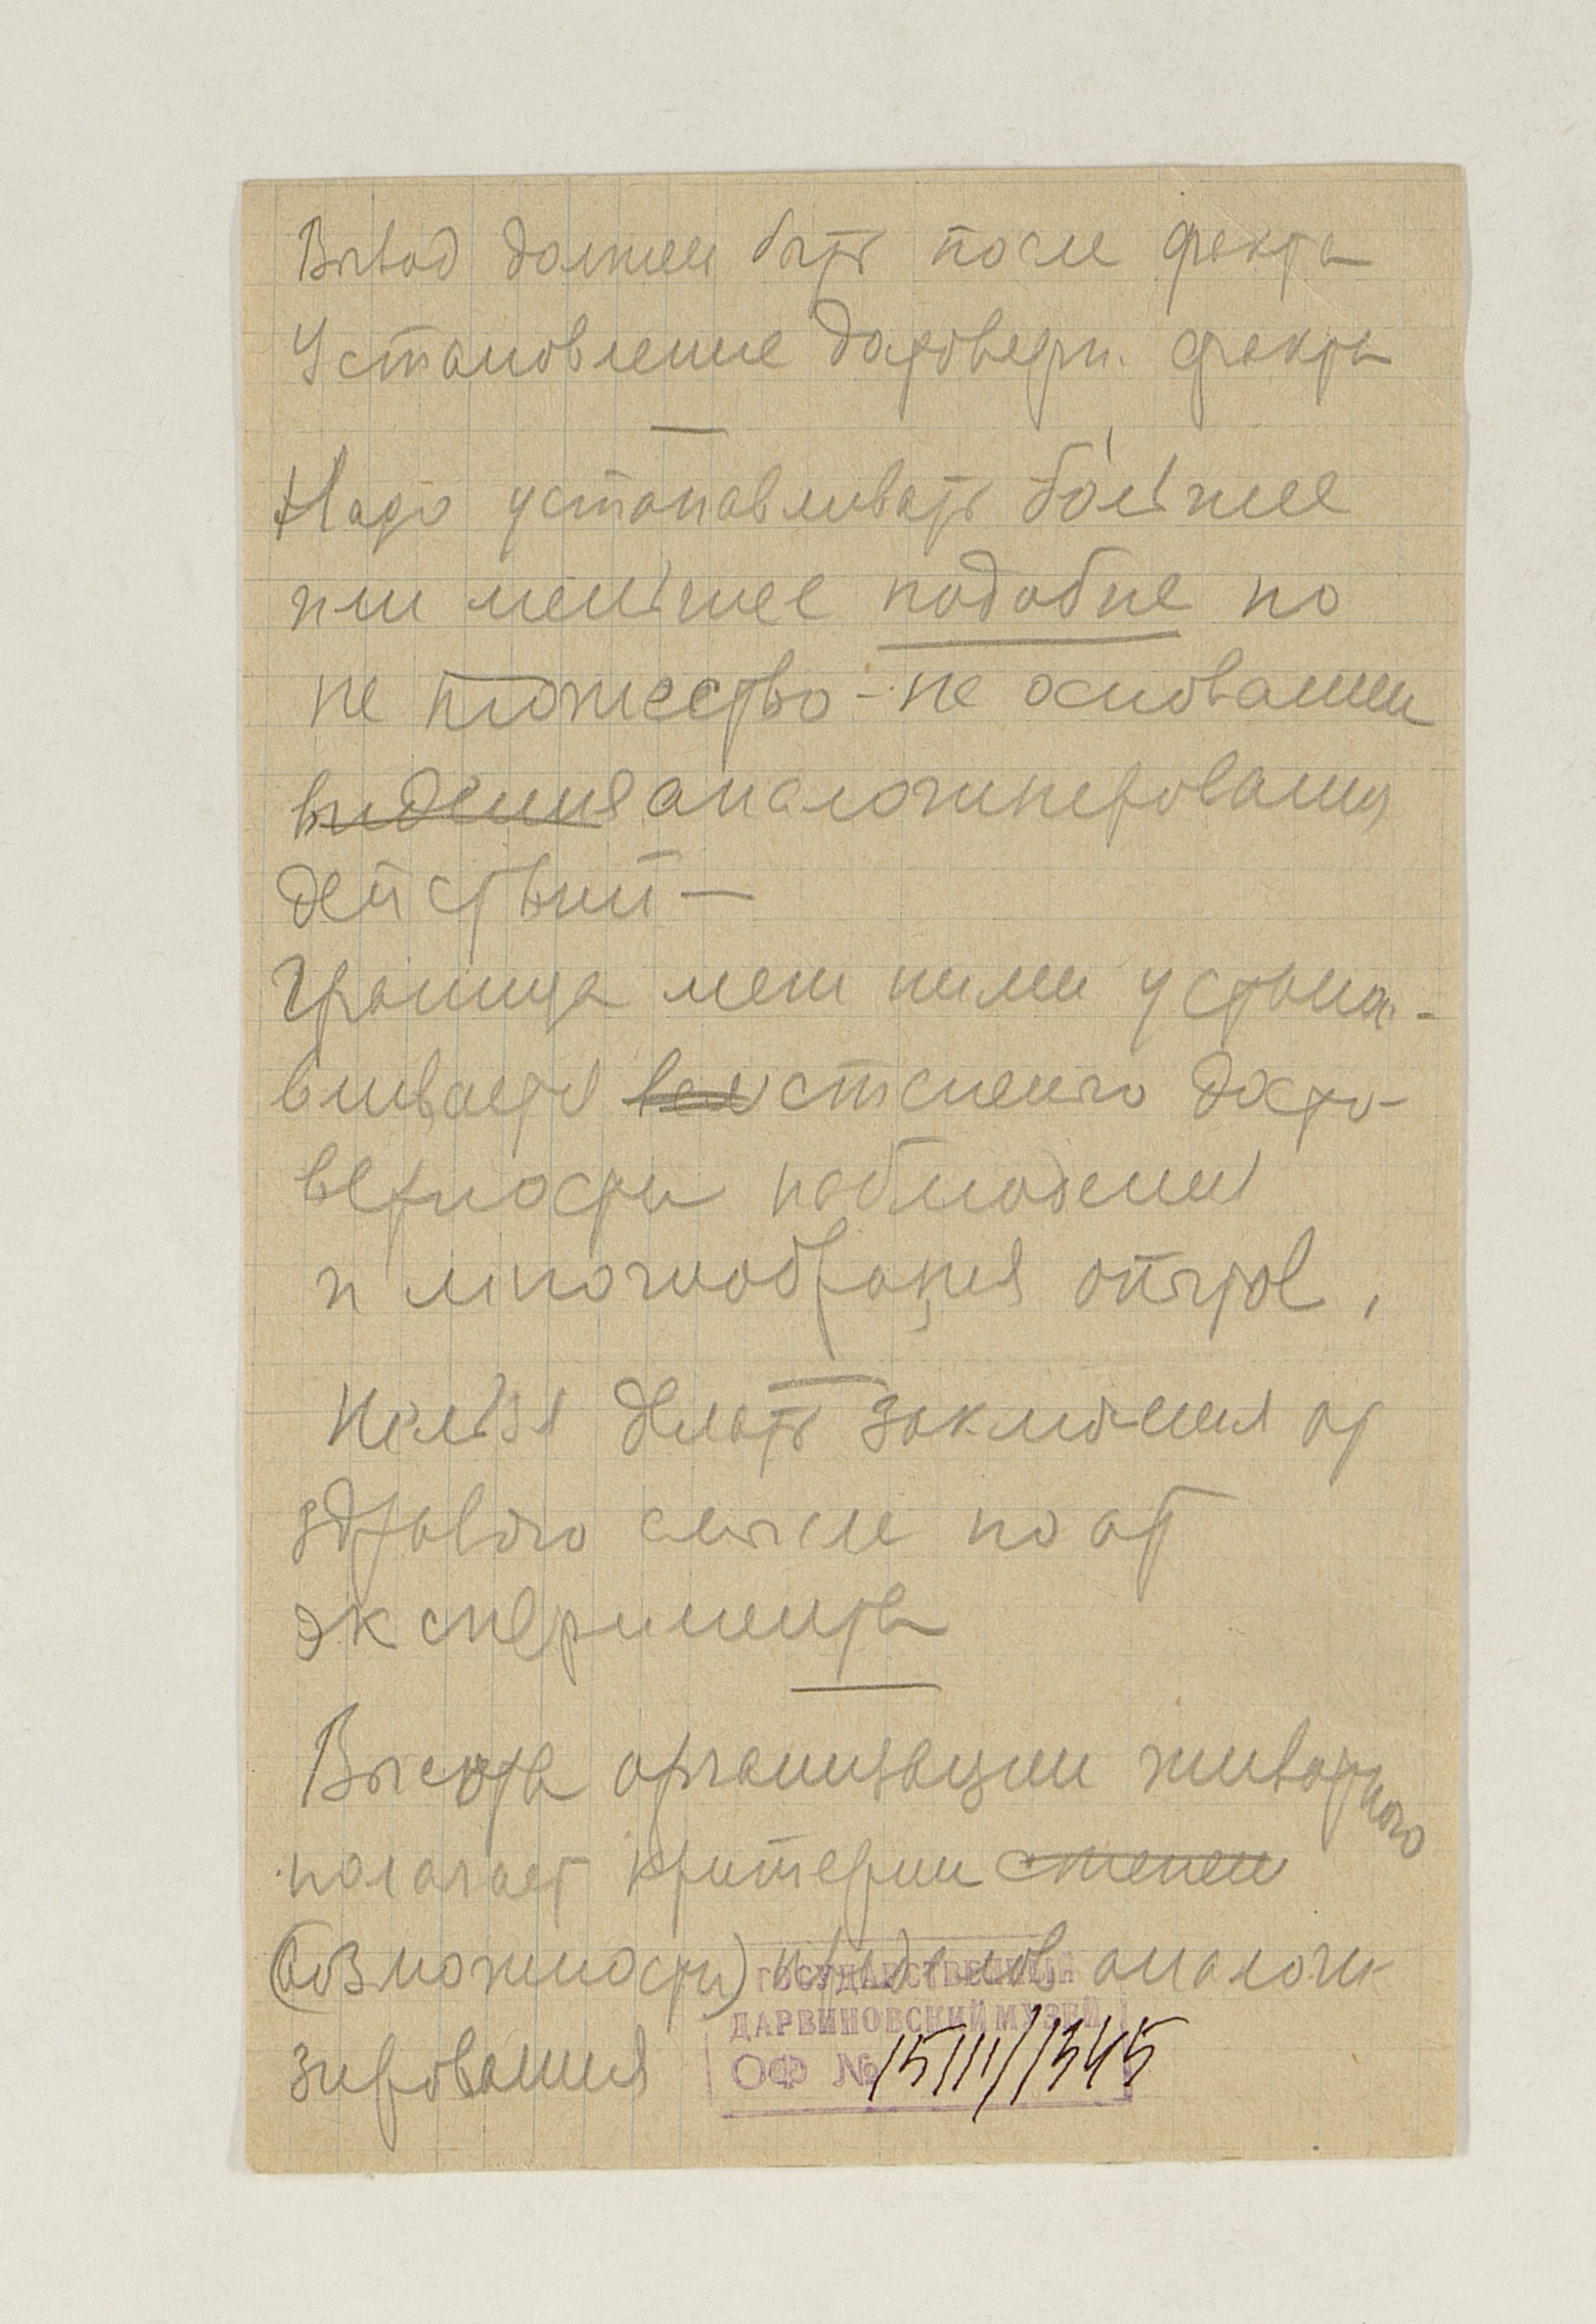 Вывод должен быть после факта
Установление достоверн. факта
Надо устанавливать бо́льшее
или меньшее подобие но
не тожество - на основании
видения аналогизирования
действий —
Граница меж ними устана-
вливается степенью досто-
верности наблюдения
и многообразия опытов,
Нельзя делать заключения от
здравого смысла но от
эксперимента
Высота организации животного
полагает критерии степени
(возможности) пределов аналоги-
зирования
ГОСУДАРСТВЕННЫЙ
ДАРВИНОВСКИЙ МУЗЕЙ
ОФ № 15111/1345